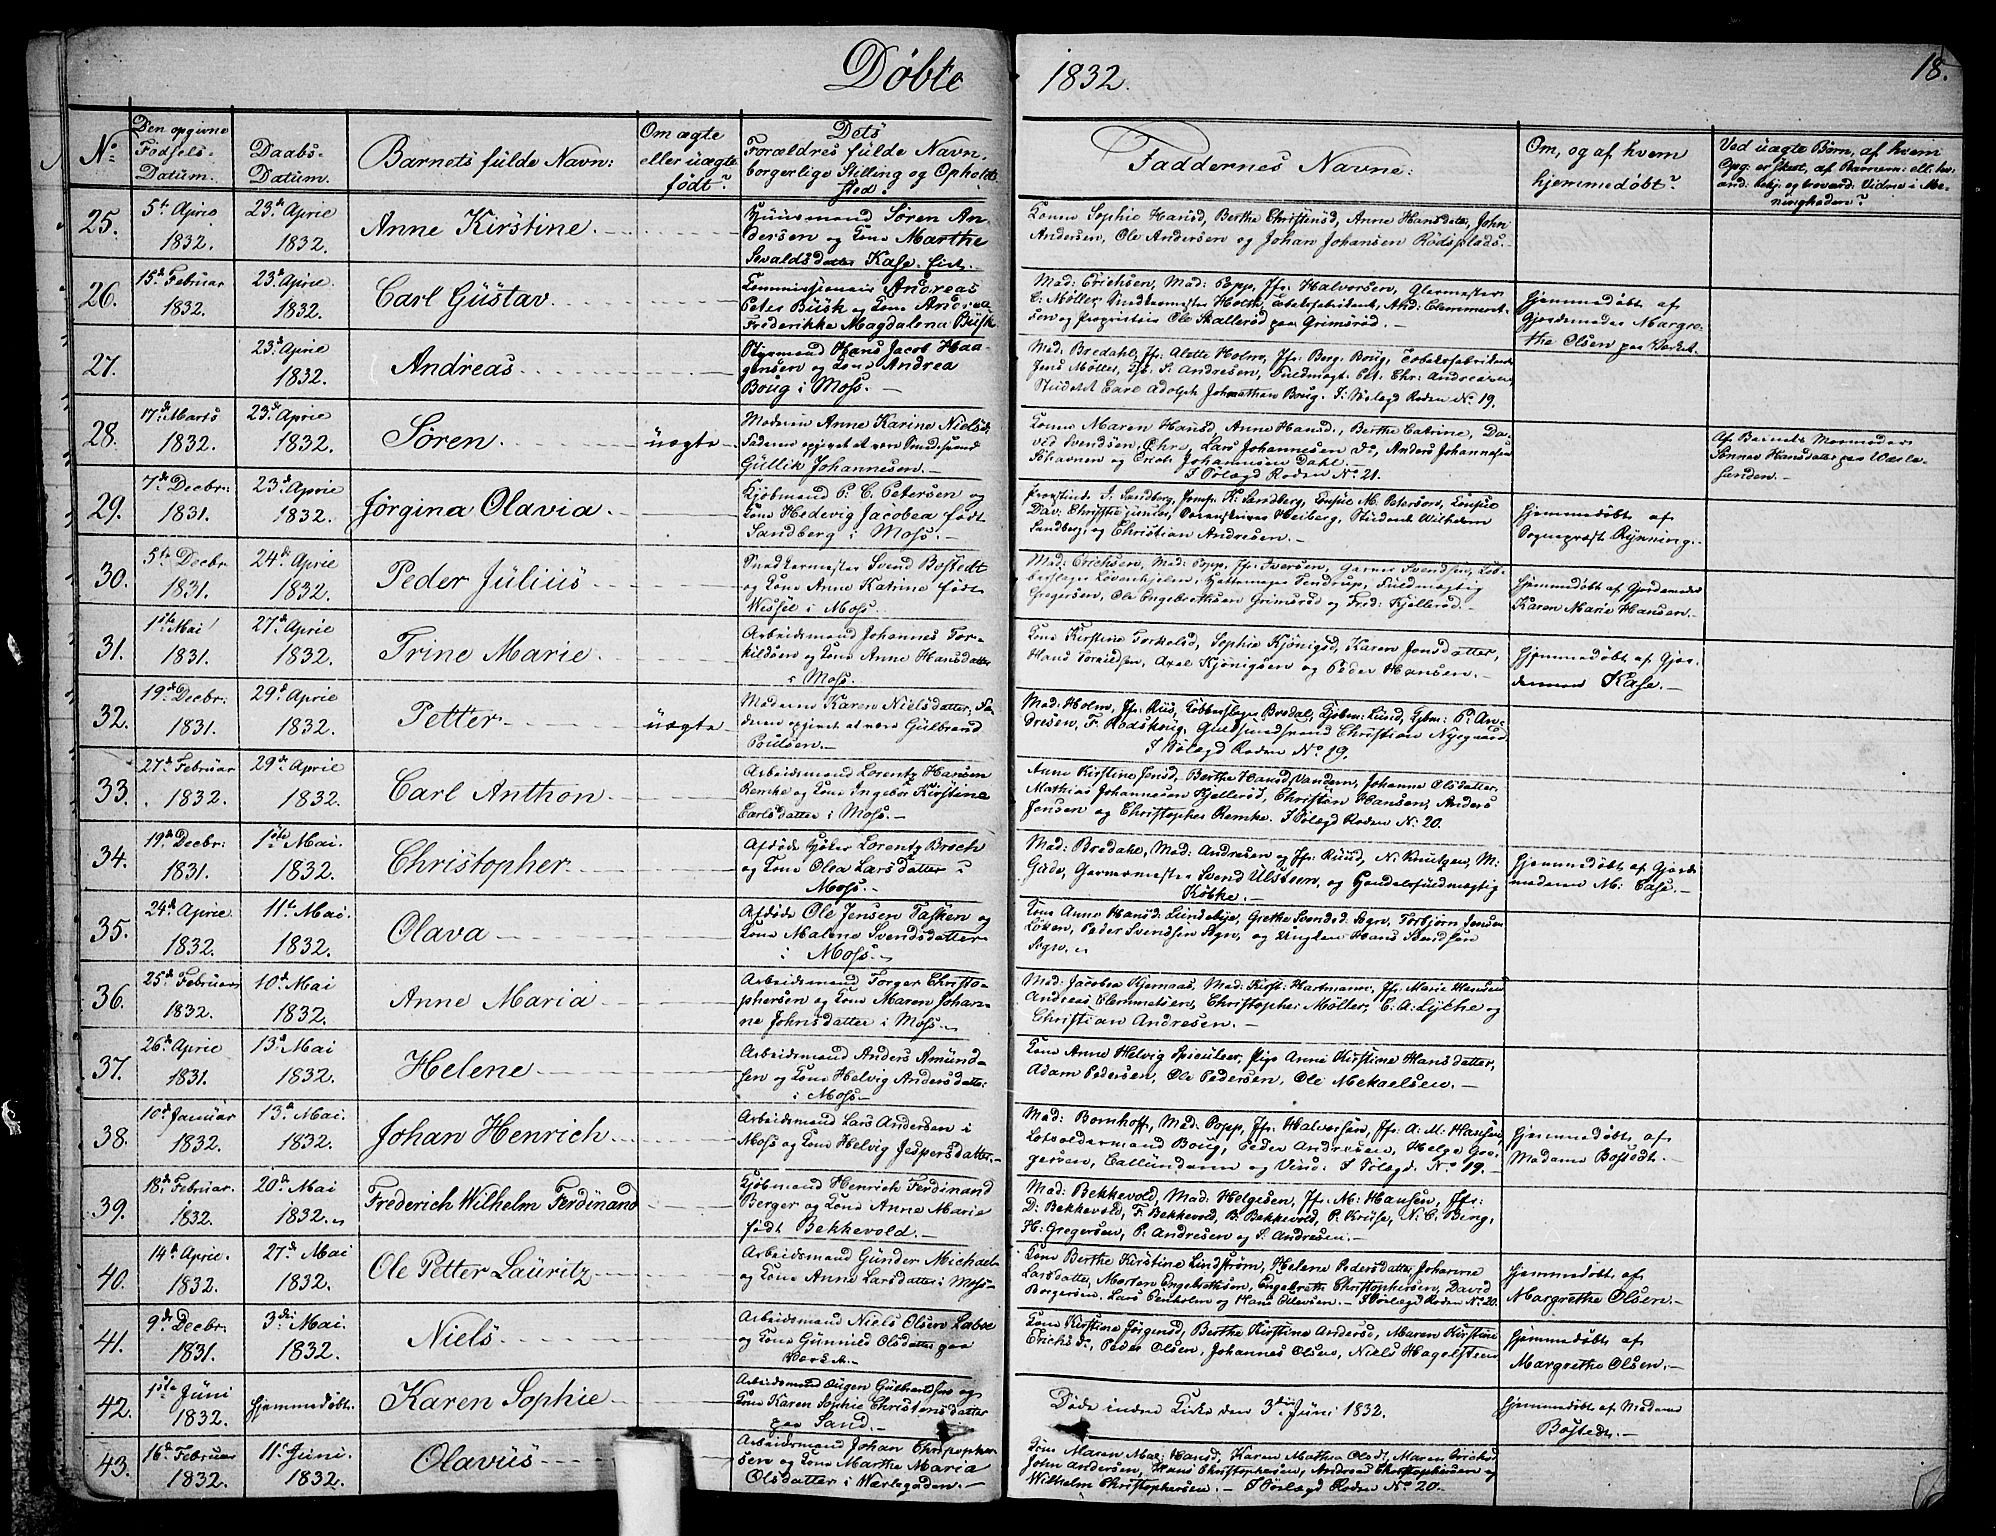 Döbte 1832. 18.
No
Den opgivne Födsels-Datum.
Daabs-Datum.
Barnets fulde Navn:
Om ægte eller uægte födt?
Dets Forældres fulde Navn, borgerlige Stilling og Opholdssted?
Faddernes Navne:
Om, og af hvem hjemmedöbt?
Ved uægte Börn, af hvem
25.
5te April 1832.
23de April 1832.
Anne Kirstine
Huusmand Sören Andersen og Kone Marthe Sevaldsdatter Kase.
Kone Sophie Hansd, Berthe Christensd, Anne Hansdatter, John
Andersen, Ole Andersen og Johan Johansen Rödsplads.
26.
15de Februar 1832.
23de April 1832.
Carl Gustav
Commissionair Andreas
Peter Busk og Kone Andrea
Frederikke Magdalena Busk
Mad: Erichsen, Mad: Popp, Jfr: Halvorsen, Glarmester
C: Möller, Snedkermester Holck, Tobaksfabrikant And: Clemmentsen og Proprietair Ole Skalleröd paa Grimsröd.
Hjemmedöbt af
Gjordemoder Margrethe Olsen paa Værket.
27.
23de April 1832.
Andreas
Styrmand Hans Jacob Haagensen og Kone Andrea
Boug i Moss.
Mad: Bredahl, Jfr: Alette Holm, Jfr: Berg: Boug, Tobaksfabrikant
Jens Möller, S: Andresen, Fuldmægt: Chr: Andresen
Student Carl Adolph Johnathan Boug. I: Sölægd Roden No 19.
28.
17de Marts 1832.
23de April 1832.
Sören
uægte
Moderen Anne Karine Nielsd:
Faderen opgivet at være Smedsvend
Gullik Johannesen.
Kone Maren Hansd, Anne Hansd., Berthe Catrine, David Svendsen, Lars Johannesen, Anders Johannesen
og Erich Johannesen Dahl.
I Sölægd Roden No 21.
Af Barnets Mormoder
Hansdatter paa
29.
7de Decbr: 1831.
23de April 1832.
Jörgina Olavia
Kjöbmand P: C. Petersen og
Kone Hedevig Jacobea födt
Sandberg i Moss.
J. Sandberg, Jomf. K: Sandberg, Consul M. Petersen, Consul
Dav: Chrystie junior, Sorenskriver Heiberg, Student Wilhelm
Sandberg, og Christian Andresen.
Hjemmedöbt af
Sognepræst Rynning.
30.
5te Decbr 1831.
24de April 1832.
Peder Julius
Snedkermester Svend Bostedt
og Kone Anne Katrine födt
Wessel i Moss.
Mad: Erichsen, Mad: Popp, Jfr: Iversen, Garver Svendsen,
Lövenhjelm, Hattemager Sendrup, Fuldmægtig
Gregersen, Ole Engebrethsen Grimsröd og Fred: Kjelleröd.
Hjemmedöbt af Gjordemoder
Karen Marie Hansen.
31.
1ste Mai 1831.
27de April 1832.
Trine Marie
Arbeidsmand Johannes Torkildsen og Kone Anne Hansdatter
i Moss.
Kone Kirstine Torkelsd, Sophie Kjönigsd, Karen Jonsdatter,
Hans Torkildsen, Axel Kjönigsen og Peder Hansen.
Hjemmedöbt af Gjordemoer Kase.
32.
19de Decbr: 1831.
29de April 1832.
Petter
uægte
Moderen Karen Nielsdatter, Faderen opgivet at være Gulbrand
Poulsen.
Mad: Holm, Jfr: Riis, Kobberslager Bredal, Kjöbm: Lund, Kjbm: P: Andresen, F. Rodskoug, Guldsmedsvend Christian Nygaard
I Sölægd Roden No 19.
33.
27de Februar 1832.
29de April 1832.
Carl Anthon
Arbeidsmand Lorentz Hansen
Remke og Kone Ingebor Kirstine
Carlsdatter i Moss.
Anne Kirstine Jensd, Berthe Hansd Vanderu, Johanne Olsdatter,
Mathias Johannesen Kjelleröd, Christian Hansen, Anders
Jensen og Christopher Remke. I Sölægd Roden No: 20.
34.
19de Decbr: 1831.
1ste Mai. 1832.
Christopher
Afdöde Höker Lorentz Broch
og Kone Olea Larsdatter i
Moss.
Mad: Bredahl, Mad: Andresen og Jfr: Ruud, N: Knutzen, M:
Gade, Garvermester Svend Ulsteen, og Handelsfuldmægtig
Köbke.
Hjemmedöbt af Gjordemoderen M: Case.
35.
24de April 1832.
11te Mai. 1832.
Olava
Afdöde Ole Jensen Tasken og
Kone Malene Svendsdatter
i Moss.
Kone Anne Hansd: Lundebye, Grethe Svendsd: Sogn, Torbjörn Jensen
Löken, Peder Svendsen Sogn, og Ungkarl Hans Svendsen
Sogn.
36.
25de Februar 1832.
10de Mai 1832.
Anne Maria
Arbeidsmand Torger Christophersen og Kone Maren Johanne Johnsdatter i Moss.
Mad: Jacobea Kjernaas, Mad: Kirst: Hartmann, Jfr: Marie Hansen
Andreas Clemmetsen, Christopher Möller, C. A: Lyche og
Christian Andresen.
37.
26de April 1831.
13de Mai 1832.
Helene
Arbeidsmand Anders Amundsen og Kone Helvig Andersdatter
i Moss.
Kone Anne Helvig, Pige Anne Kirstine Hansdatter,
Adam Pedersen, Ole Pedersen, Ole Mekaelsen.
38.
10de Januar 1832.
13de Mai. 1832.
Johan Henrich
Arbeidsmand Lars Andersen i
Moss og Kone Helvig Jespersdatter.
Mad: Bornhoff, Mad: Popp, Jfr: Halvorsen, Jfr: A: M: Hansen,
Lotsoldermand Boug, Peder Andresen, Helge Gregersen, Callundann og Vind. I Sölægd: No 19.
Hjemmedöbt af
Madame Bostedt.
39.
18de Februar. 1832.
20de Mai 1832.
Frederich Wilhelm Ferdinand
Kjöbmand Henrich Ferdinand
Berger og Kone Anne Marie
födt Bekkevold.
Mad: Bekkevold, Mad: Helgesen, Jfr: M: Hansen, Jfr:
D: Bekkevold, F: Bekkevold, B: Bekkevold, P: Kruse, N: C. Bing,
H: Gregersen, P: Andresen og S. Andresen.
40.
14de April. 1832.
27de Mai 1832.
Ole Petter Lauritz
Arbeidsmand Gunder Michaels
og Kone Anne Larsdatter i Moss
Kone Berthe Kirstine Lindström, Helene Pedersdatter, Johanne
Larsdatter, Morten Engebrethsen, Engebreth Christophersen, David
Borgersen. Lars Penholm og Hans Olavsen. I Sölægd Roden No 20.
Hjemmedöbt af
Margrethe Olsen.
41.
9de Decbr. 1831.
3die Mai. 1832.
Niels
Arbeidsmand Niels Olsen
og Kone Gunnild Olsdatter paa
Værket.
Kone Kirstine Jörgensd, Berthe Kirstine Andersd, Maren Kirstine
Ericksd., Peder Olsen, Johannes Olsen, Niels Hagelsteen
Hjemmedöbt af
Margrethe Olsen.
42.
1ste Juni 1832.
Hjemmedöbt.
Karen Sophie
Arbeidsmand Gulbrandsen og
Kone Karen Sophie Christensdatter
paa Sand.
Döde uden Kirke den 3die Juni 1832.
Hjemmedöbt af Madame
Bostedt.
43.
16de Februar 1832.
11te Juni. 1832.
Olavus
Arbeidsmand Johan Christophersen og Kone Marthe Maria
Olsdatter i Værlegaden.
Kone Maren Mar: Hansd, Karen Mathea Olsd, Maren Ericksd
John Andersen, Hans Christophersen, Andreas Christophersen og
Wilhelm Christophersen. I Sölægd Roden No 20.